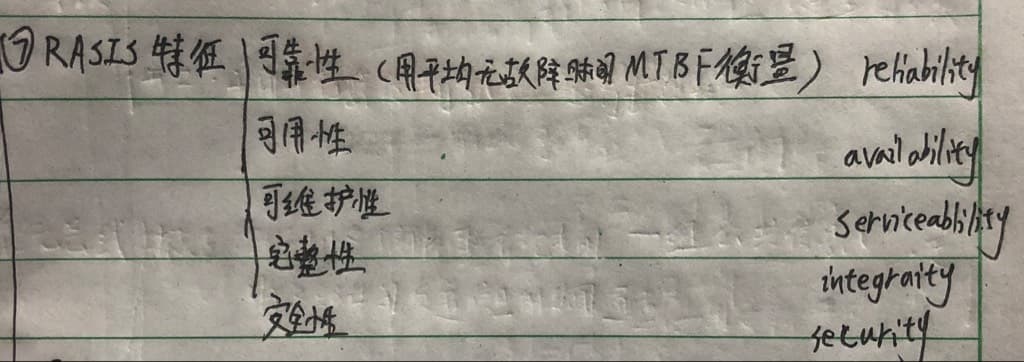 ⑦ RASIS 特征 可靠性 (用平均无故障时间 MTBF衡量) reliability
可用性 availability
可维护性 serviceablility
完整性 integraity
安全性 security